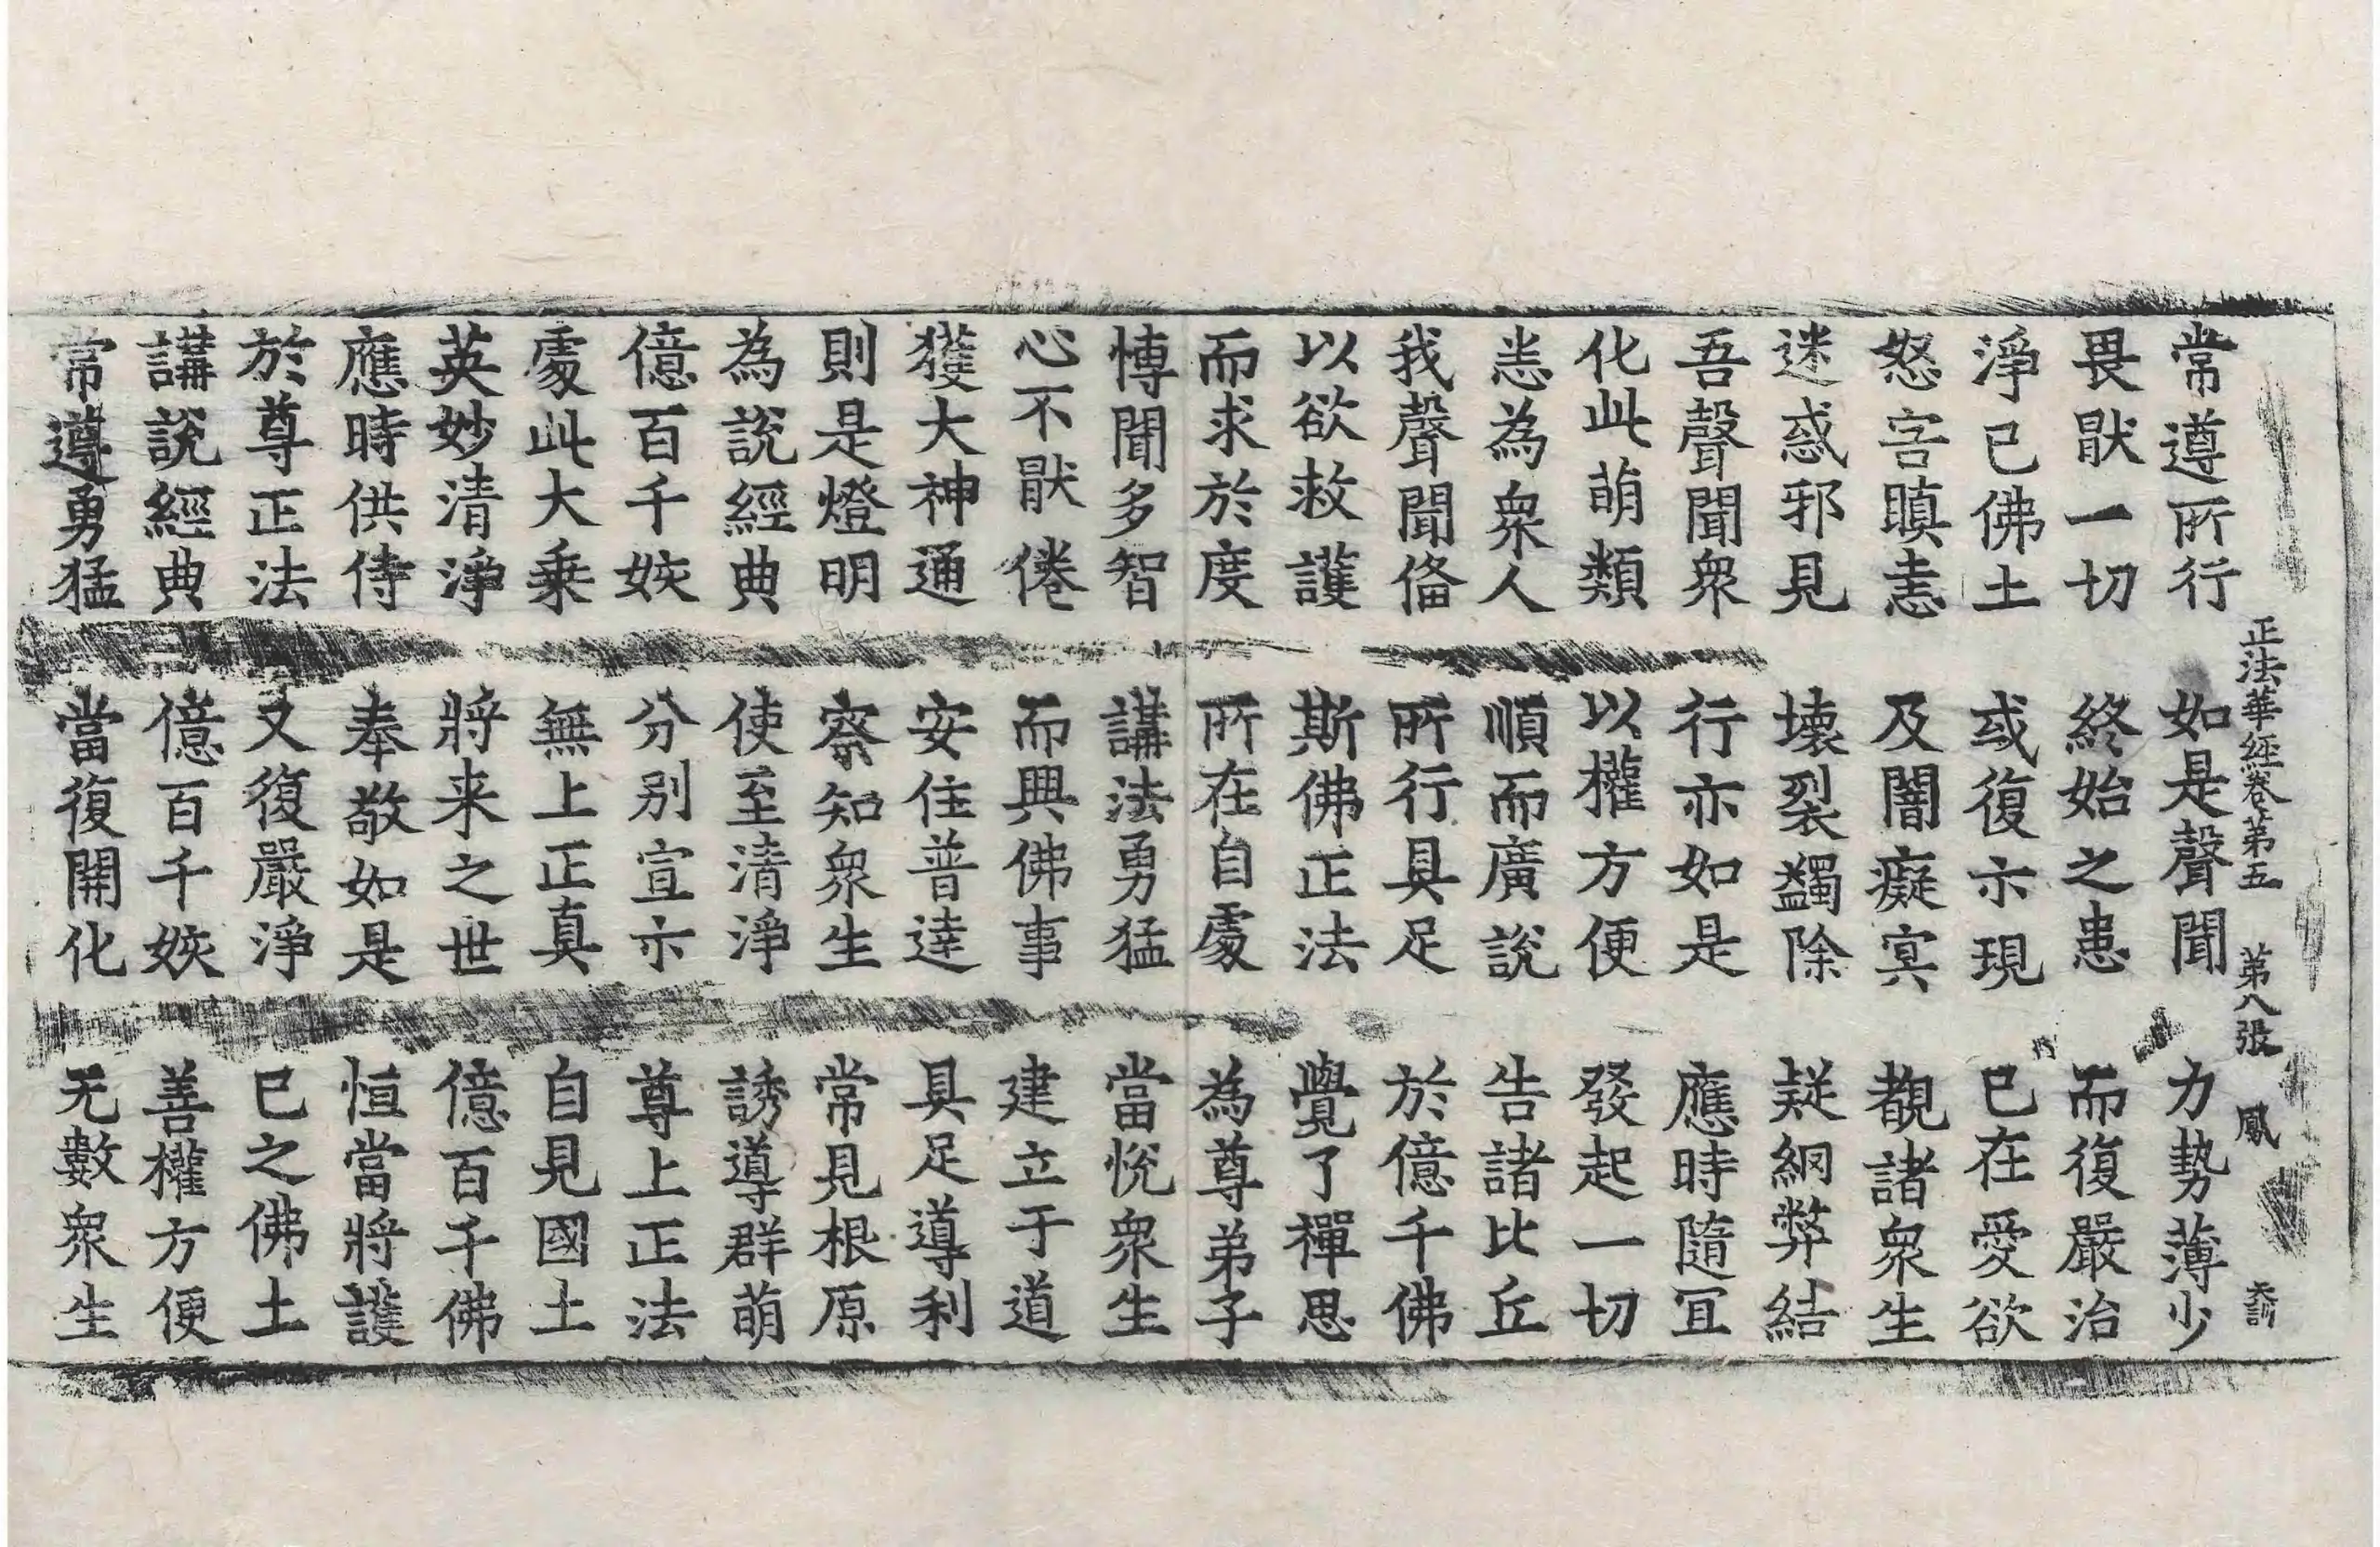 正法華經卷第五 第八張 鳳 天訓
常遵所行 如是聲聞 力勢薄少
畏猒一切 終始之患 而復嚴治
淨已佛土 或復示現 已在愛欲
怒害瞋恚 及闇癡冥 覩諸衆生
迷惑邪見 壞裂蠲除 疑網弊結
吾聲聞衆 行亦如是 應時隨冝
化此萌類 以權方便 發起一切
恙為衆人 順而廣說 告諸比丘
我聲聞俻 所行具足 於億千佛
以欲救護 斯佛正法 覺了禪思
而求於度 所在自處 為尊弟子
愽聞多智 講法勇猛 當恱衆生
心不猒倦 而興佛事 建立于道
獲大神通 安住普達 具足導利
則是燈明 察知衆生 常見根原
為說經典 使至清淨 誘導群萌
億百千姟 分別宣示 尊上正法
處此大乗 無上正真 自見國土
英妙清淨 將来之世 億百千佛
應時供侍 奉敬如是 恒當將護
於尊正法 又復嚴淨 已之佛土
講說經典 億百千姟 善權方便
常遵勇猛 當復開化 无數衆生